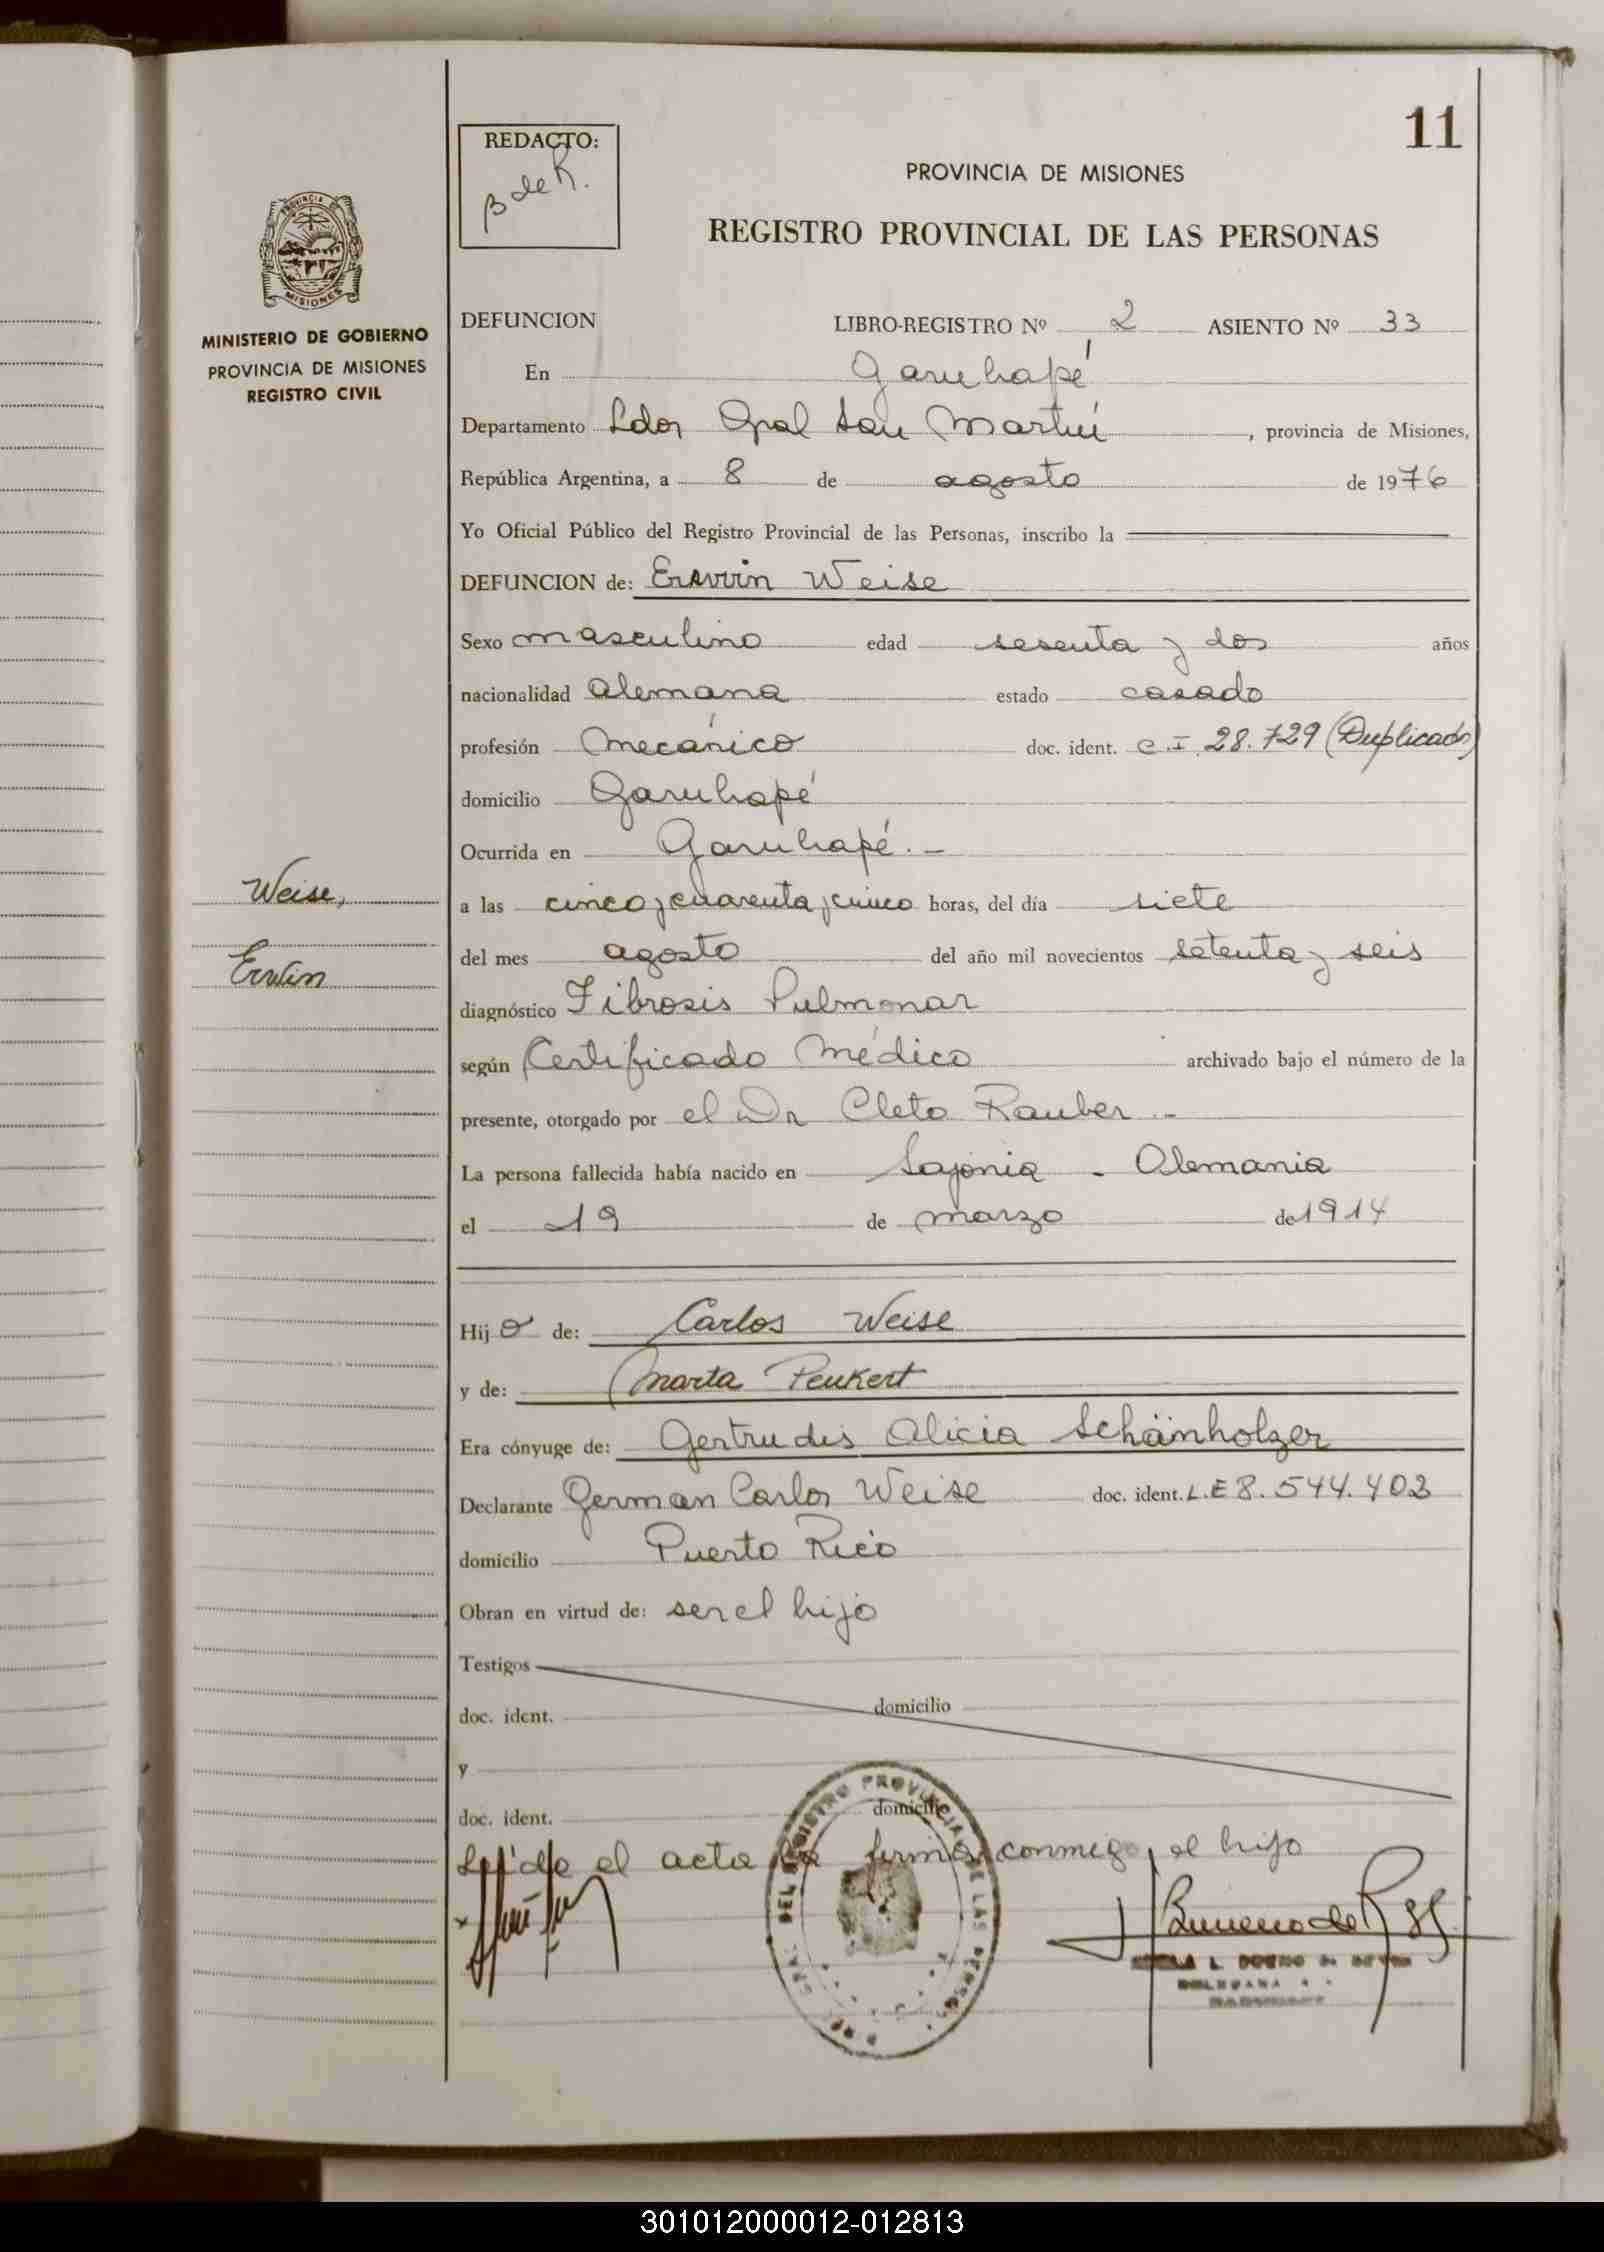 11
REDACTO:
B de R.
PROVINCIA DE MISIONES
REGISTRO PROVINCIAL DE LAS PERSONAS
PROVINCIA DE
MISIONES
MINISTERIO DE GOBIERNO
PROVINCIA DE MISIONES
REGISTRO CIVIL
DEFUNCION LIBRO-REGISTRO Nº 2 ASIENTO Nº 33
En Garuhapé
Departamento Ldor Gral San Martín, provincia de Misiones,
República Argentina, a 8 de agosto de 1976
Yo Oficial Público del Registro Provincial de las Personas, inscribo la
DEFUNCION de: Erwin Weise
Sexo masculino edad sesenta y dos años
nacionalidad alemana estado casado
profesión mecánico doc. ident. C.I. 28.729 (Duplicado)
domicilio Garuhapé
Ocurrida en Garuhapé.-
Weise,
a las cinco y cuarenta y cinco horas, del día siete
Erwin
del mes agosto del año mil novecientos setenta y seis
diagnóstico Fibrosis Pulmonar
según Certificado Médico archivado bajo el número de la
presente, otorgado por el Dr Cleto Rauber.-
La persona fallecida había nacido en Sajonia - Alemania
el 19 de marzo de 1914
Hijo de: Carlos Weise
y de: Marta Peukert
Era cónyuge de: Gertrudis Alicia Schänholzer
Declarante German Carlos Weise doc. ident. L.E 8.544.402
domicilio Puerto Rico
Obran en virtud de: ser el hijo
Testigos
doc. ident. domicilio
y
doc. ident. domicilio
Leída el acta la firma conmigo, el hijo
DEL REGISTRO PROVINCIAL DE LAS PERSONAS
301012000012-012813